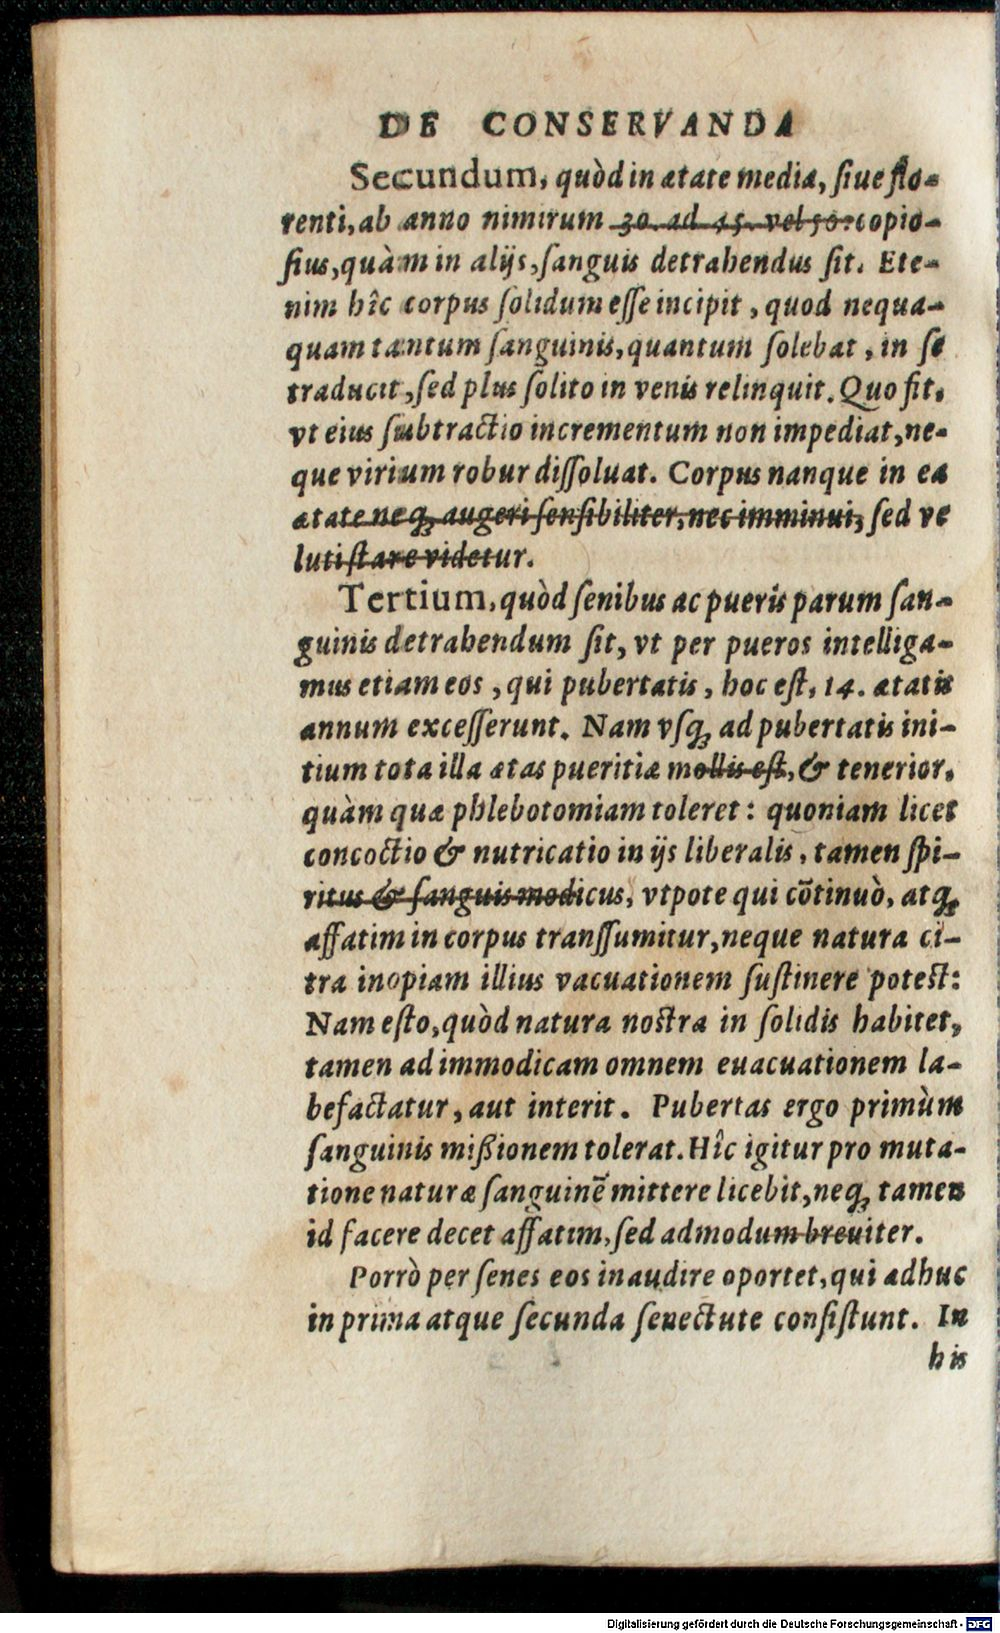 DE CONSERVANDA
Secundum, quòd in ætate media, ſiue flo-
renti, ab anno nimirum 30. ad 45. vel 50. copio-
ſius, quàm in alijs, ſanguis detrahendus ſit. Ete-
nim hîc corpus ſolidum eſſe incipit, quod nequa-
quam tantum ſanguinis, quantum ſolebat, in ſe
traducit, ſed plus ſolito in venis relinquit. Quo fit,
vt eius ſubtractio incrementum non impediat, ne-
que virium robur diſſoluat. Corpus nanque in ea
ætate neq; augeri ſenſibiliter, nec imminui, ſed ve
luti ſtare videtur.
Tertium, quòd ſenibus ac pueris parum ſan-
guinis detrahendum ſit, vt per pueros intelliga-
mus etiam eos, qui pubertatis, hoc eſt, 14. ætatis
annum exceſſerunt. Nam vſq; ad pubertatis ini-
tium tota illa ætas pueritiæ mollis eſt, & tenerior,
quàm quæ phlebotomiam toleret: quoniam licet
concoctio & nutricatio in ijs liberalis, tamen ſpi-
ritus & ſanguis modicus, vtpote qui cõtinuò, atq;
affatim in corpus tranſſumitur, neque natura ci-
tra inopiam illius vacuationem ſuſtinere poteſt:
Nam eſto, quòd natura noſtra in ſolidis habitet,
tamen ad immodicam omnem euacuationem la-
befactatur, aut interit. Pubertas ergo primùm
ſanguinis mißionem tolerat. Hîc igitur pro muta-
tione naturæ ſanguinẽ mittere licebit, neq; tamen
id facere decet affatim, ſed admodum breuiter.
Porrò per ſenes eos inaudire oportet, qui adhuc
in prima atque ſecunda ſenectute conſiſtunt. In
his
Digitalisierung gefördert durch die Deutsche Forschungsgemeinschaft - DFG